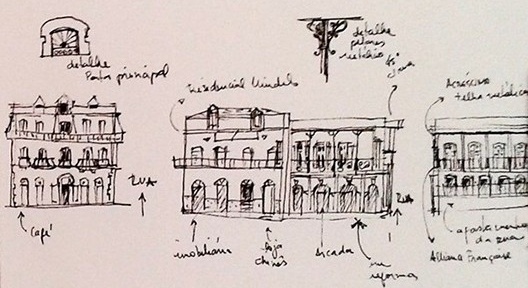 detalhe
Porta principal
detalhe
pilares
metálico
Residencial Mindelo
Acréscimo
telha metálica
RUA
RUA
Café
imobiliária
loja
chinês
Arcadas
em
reforma
Alliance Française